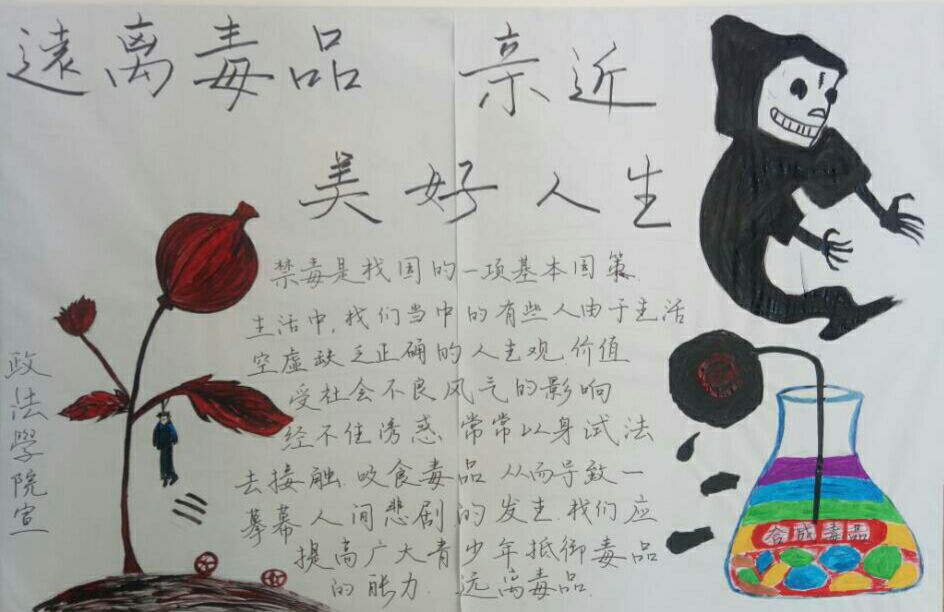 遠离毒品 亲近
美好人生
禁毒是我国的一项基本国策.
生活中,我们当中的有些人由于生活
空虚缺乏正确的人生观 价值
受社会不良风气的影响
经不住诱惑 常常以身试法
去接触.吸食毒品 从而导致一
摹幕人间悲剧的发生.我们应
提高广大青少年抵御毒品
的能力.远离毒品.
政法學院宣
合成毒品